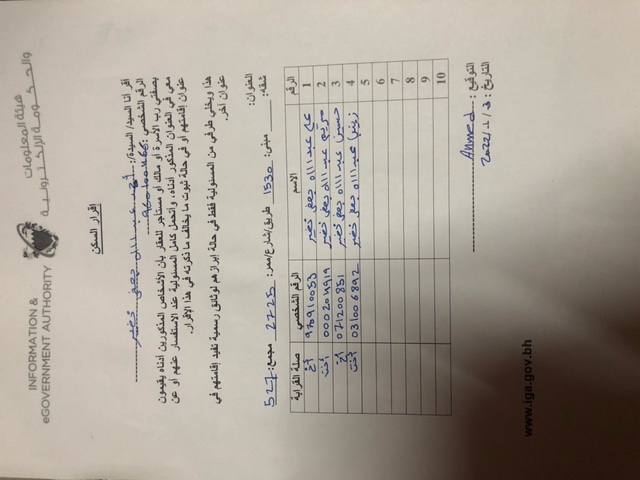 INFORMATION &
eGOVERNMENT AUTHORITY
هيئة المعلومات
والحكومة الإلكترونية
إقرار السكن
أقر أنا السيد/ السيدة/: أحمد عبدالله جعفر خضير
الرقم الشخصي: 960100466
بصفتي رب الأسرة أو مالك أو مستأجر للعقار بأن الأشخاص المذكورين أدناه يقيمون
معي في العنوان المذكور أدناه، وأتحمل كامل المسئولية عند الاستفسار عنهم أو عن
عنوان إقامتهم أو في حالة ثبوت ما يخالف ما ذكرته في هذا الإقرار.
هذا ويخلي طرفي من المسئولية فقط في حالة إبرازهم لوثائق رسمية تفيد إقامتهم في
عنوان آخر.
العنوان:
شقه: ـــــ مبنى: 1530 طريق/شارع/ممر: 2725 مجمع: 527
الرقم الاسم الرقم الشخصي صلة القرابة
1 علي عبدالله جعفر خضير 970910053 أخ
2 مريم عبدالله جعفر خضير 000204919 أخت
3 حسين عبدالله جعفر خضير 071200851 أخ
4 زينب عبدالله جعفر خضير 031006892 أخت
5
6
7
8
9
10
التوقيع: Ahmed
التاريخ: 3/1/2022
www.iga.gov.bh